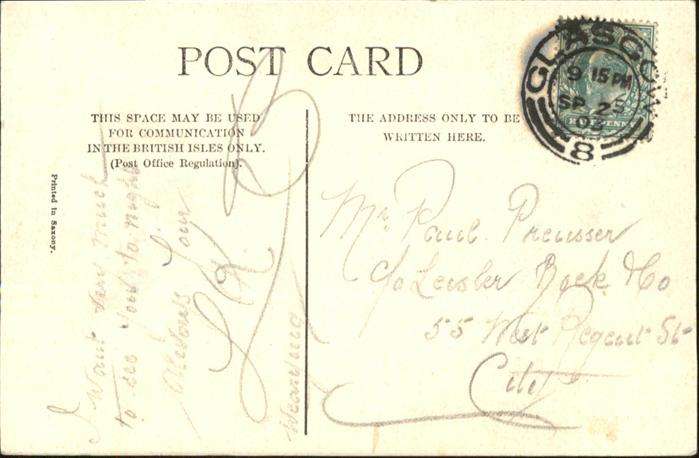 POST CARD
THIS SPACE MAY BE USED
FOR COMMUNICATION
IN THE BRITISH ISLES ONLY.
(Post Office Regulation).
THE ADDRESS ONLY TO BE
WRITTEN HERE.
Printed in Saxony.
GLASGOW
9 15 PM
SP 25
8
HALFPENNY
I Want very much
to see you to night
Mr Paul Preusser
c/o Leisler Bock & Co
55 West Regent St
City